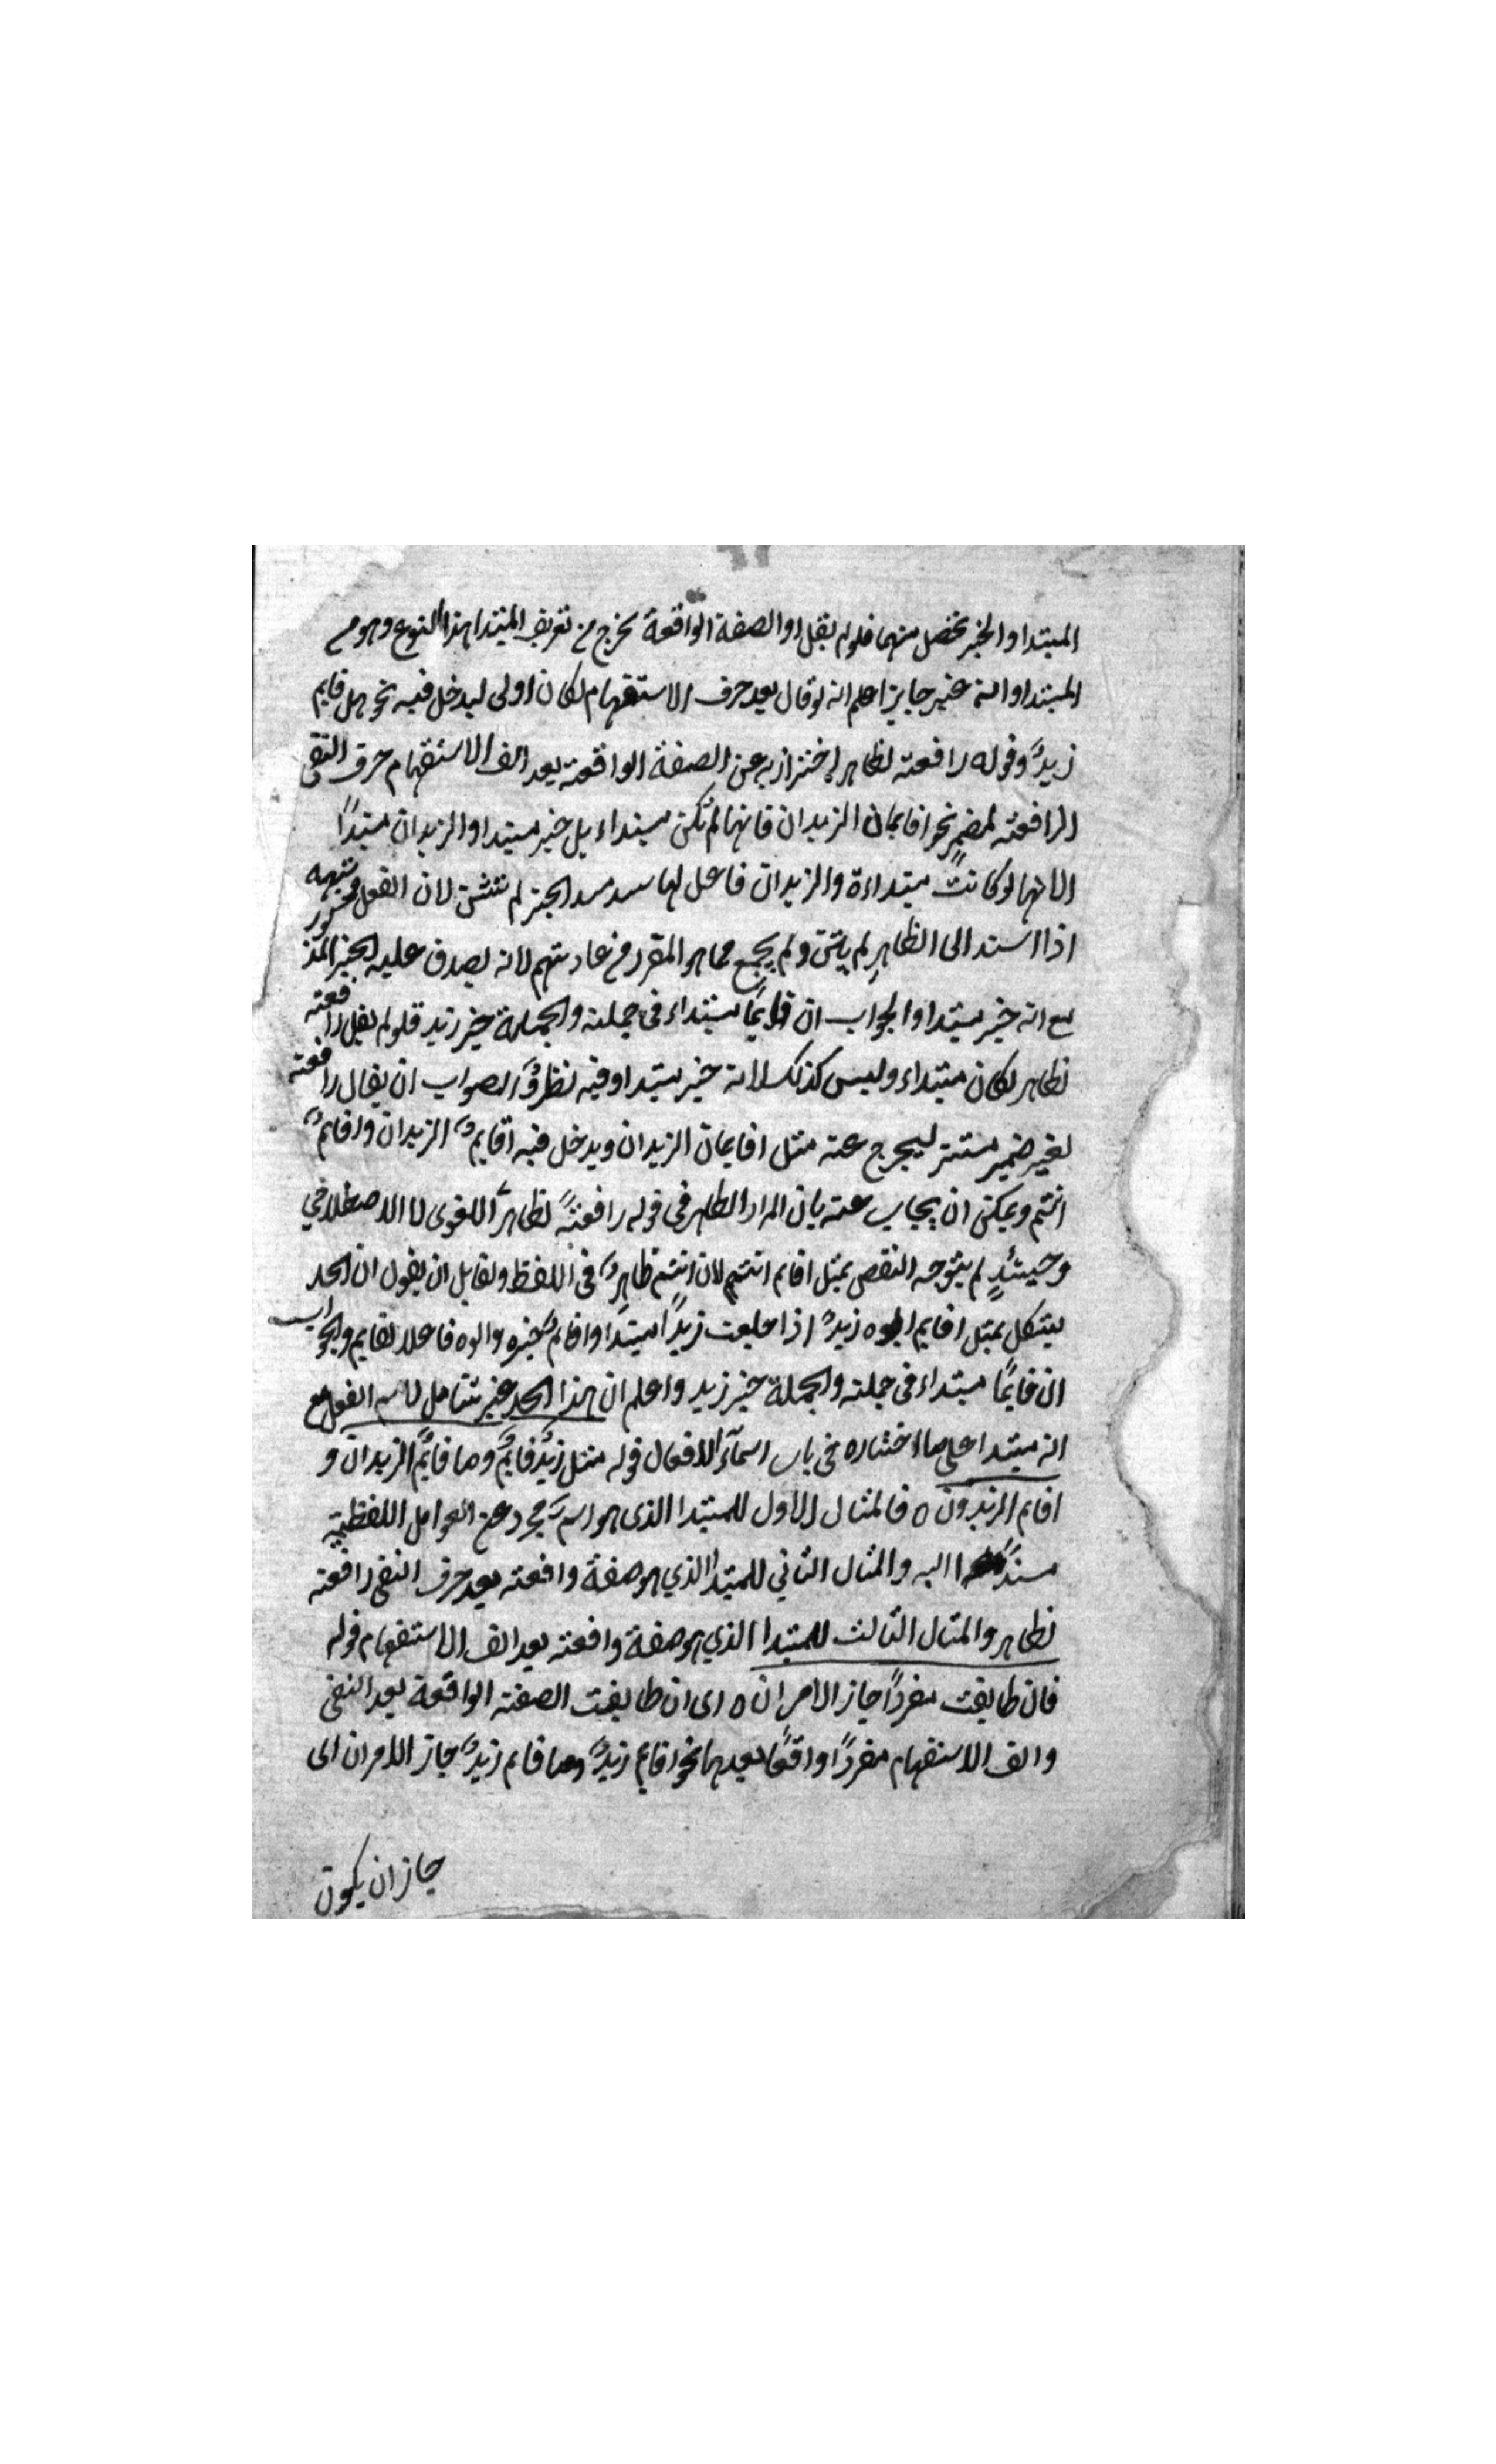 المبتدا والخبر تحصل منهما فلو لم يقل او الصفة الواقعة لخرج من تعريف المبتدا هذا النوع وهو من
المبتدا وانه غير جايز اعلم انه لو قال بعد حرف الاستفهام لكان اولى ليدخل فيه نحو هل قايم
زيدٌ وقوله رافعته لظاهر إحتراز به عن الصفة الواقعته بعد الف الاستفهام حرف النفى
الرافعته لمضمرٍ نحو اقايمان الزيدان فانهما لم تكن مبتداء بل خبر مبتدا والزيدان مبتدأ
لانهما لو كانتً مبتداءة والزيدان فاعل لها سد مسد الخبر لم تثنّ لان الفعل وشبهه
اذا اسند الى الظاهرِ لم يثنّ ولم يجمع مما هو المقرر من عادتهم لانه يصدق عليه الخبر المذكور
مع انه خبر مبتدا والجواب ان قايمًا مبتداء فى جملته والجملة خبر زيد قلو لم يقل رافعته
لظاهر لكان مبتداء وليس كذلك لانه خبر مبتدا وفيه نظرٌ والصواب ان يقال رافعته
لغير ضمير مستتر ليخرج عنه مثل اقايمان الزيدان ويدخل فيه اقايمٌ الزيدان واقايمٌ
انتم ويمكن ان يجاب عنه بان المراد الظاهر فى قوله رافعتهً لظاهرٍ اللغوى لا الاصطلاحي
وحينئدٍ لم يتوجه النقص بمثل اقايم انتم لان انتم ظاهرٌ فى اللفظ ولقايل ان يقول ان الحد
يشكل بمثل اقايم ابوه زيدٌ اذا جلعت زيدًا مبتدًا واقايمٌ خبره وابوه فاعلا لقايم والجواب
ان قايمًا مبتداء فى جملته والجملة خبر زيد واعلم ان هذا الحد غير شامل لاسم الفعل مع
انه مبتدا على ما اختاره فى باب اسمآء الافعال قوله مثل زيدٌ قايمٌ وما قايمٌ الزيدان و
اقايم الزيدون ٥ فالمثال الاول للمبتدا الذى هو اسم مجرد عن العوامل اللفظيه
مسندًا اليه والمثال الثاني للمبتدا الذي هو صفة واقعته بعد حرف النفى رافعته
لظاهر والمثال الثالث للمبتدا الذي هو صفة واقعته بعد الف الاستفهام قوله
فان طابقت مفردًا جاز الامران ٥ اى ان طابقت الصفته الواقعة بعد النفى
والف الاستفهام مفردًا واقعًا بعدهما نحو اقايم زيدٌ وما قايم زيدٌ جاز الامران اى
جاز ان يكون